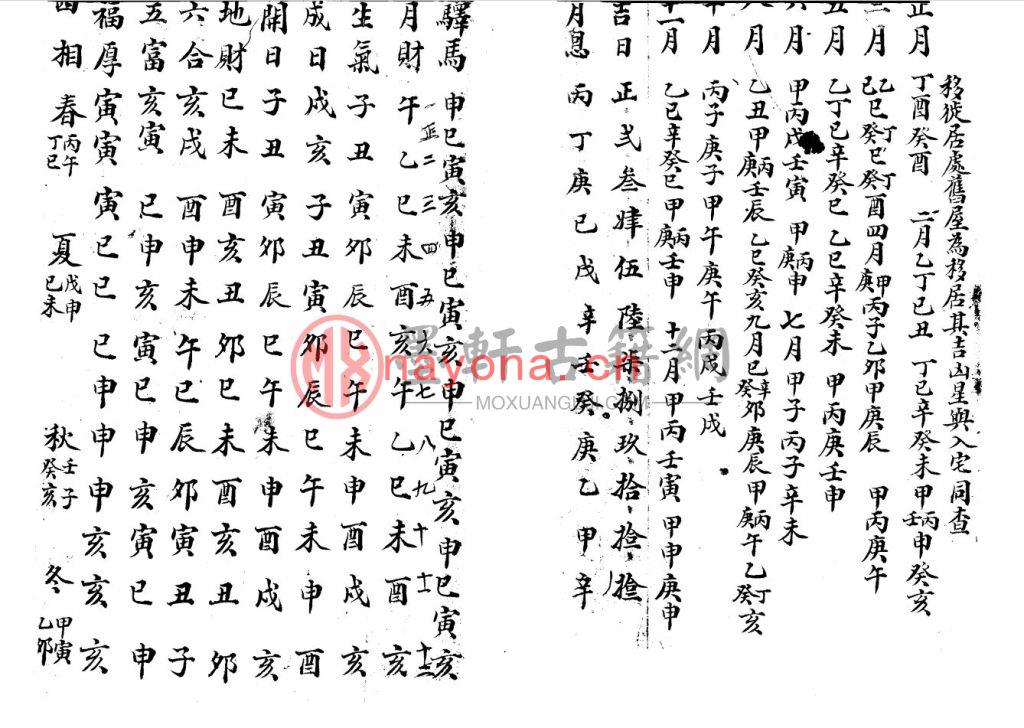 移徙居處舊屋為移居其吉凶星與入宅同查
正月 丁酉癸酉 二月乙丁己丑 丁巳辛癸未甲丙壬申癸亥
三月 乙己巳丁癸巳丁癸酉四月甲庚丙子乙卯甲庚辰 甲丙庚午
五月 乙丁巳辛癸巳 乙巳辛癸未 甲丙庚壬申
六月 甲丙戊壬寅 甲丙庚申 七月甲子丙子辛未
八月 乙丑甲庚丙壬辰 乙巳癸亥九月己辛癸卯庚辰甲丙庚午乙丁癸亥
十月 丙子庚子甲午庚午丙戌壬戌
十一月 乙巳辛癸巳甲丙庚壬申 十二月甲丙壬寅 甲申庚申
吉日 正 弍 叁 肆 伍 陸 柒 捌 玖 拾 拾 拾
月恩 丙 丁 庚 己 戊 辛 壬 癸 庚 乙 甲 辛
驛馬 申巳寅亥申巳寅亥申巳寅亥申巳寅亥
正 二 三 四 五 六 七 八 九 十 十一 十二
月財 午乙巳未酉亥午乙巳未酉亥
生氣 子丑寅卯辰巳午未申酉戌亥
成日 戌亥子丑寅卯辰巳午未申酉
開日 子丑寅卯辰巳午未申酉戌亥
地財 巳未酉亥丑卯巳未酉亥丑卯
六合 亥戌酉申未午巳辰卯寅丑子
五富 亥寅巳申亥寅巳申亥寅巳申
福厚 寅寅寅巳巳巳申申申亥亥亥
四相 春丙午丁巳 夏戊申己未 秋壬子癸亥 冬甲寅乙卯
墨軒古籍網
nayona.cn
MOXUANGUJI.CN